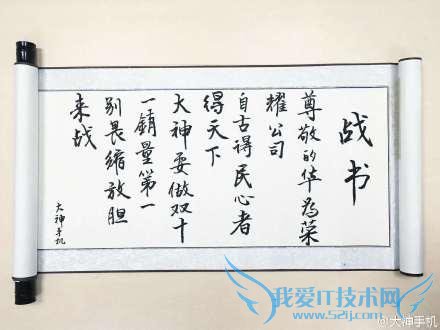 战书
尊敬的华为荣
耀公司
自古得民心者
得天下
大神要做双十
一销量第一
别畏缩放胆
来战
大神手机
我爱IT技术网
www.52ij.com
@大神手机